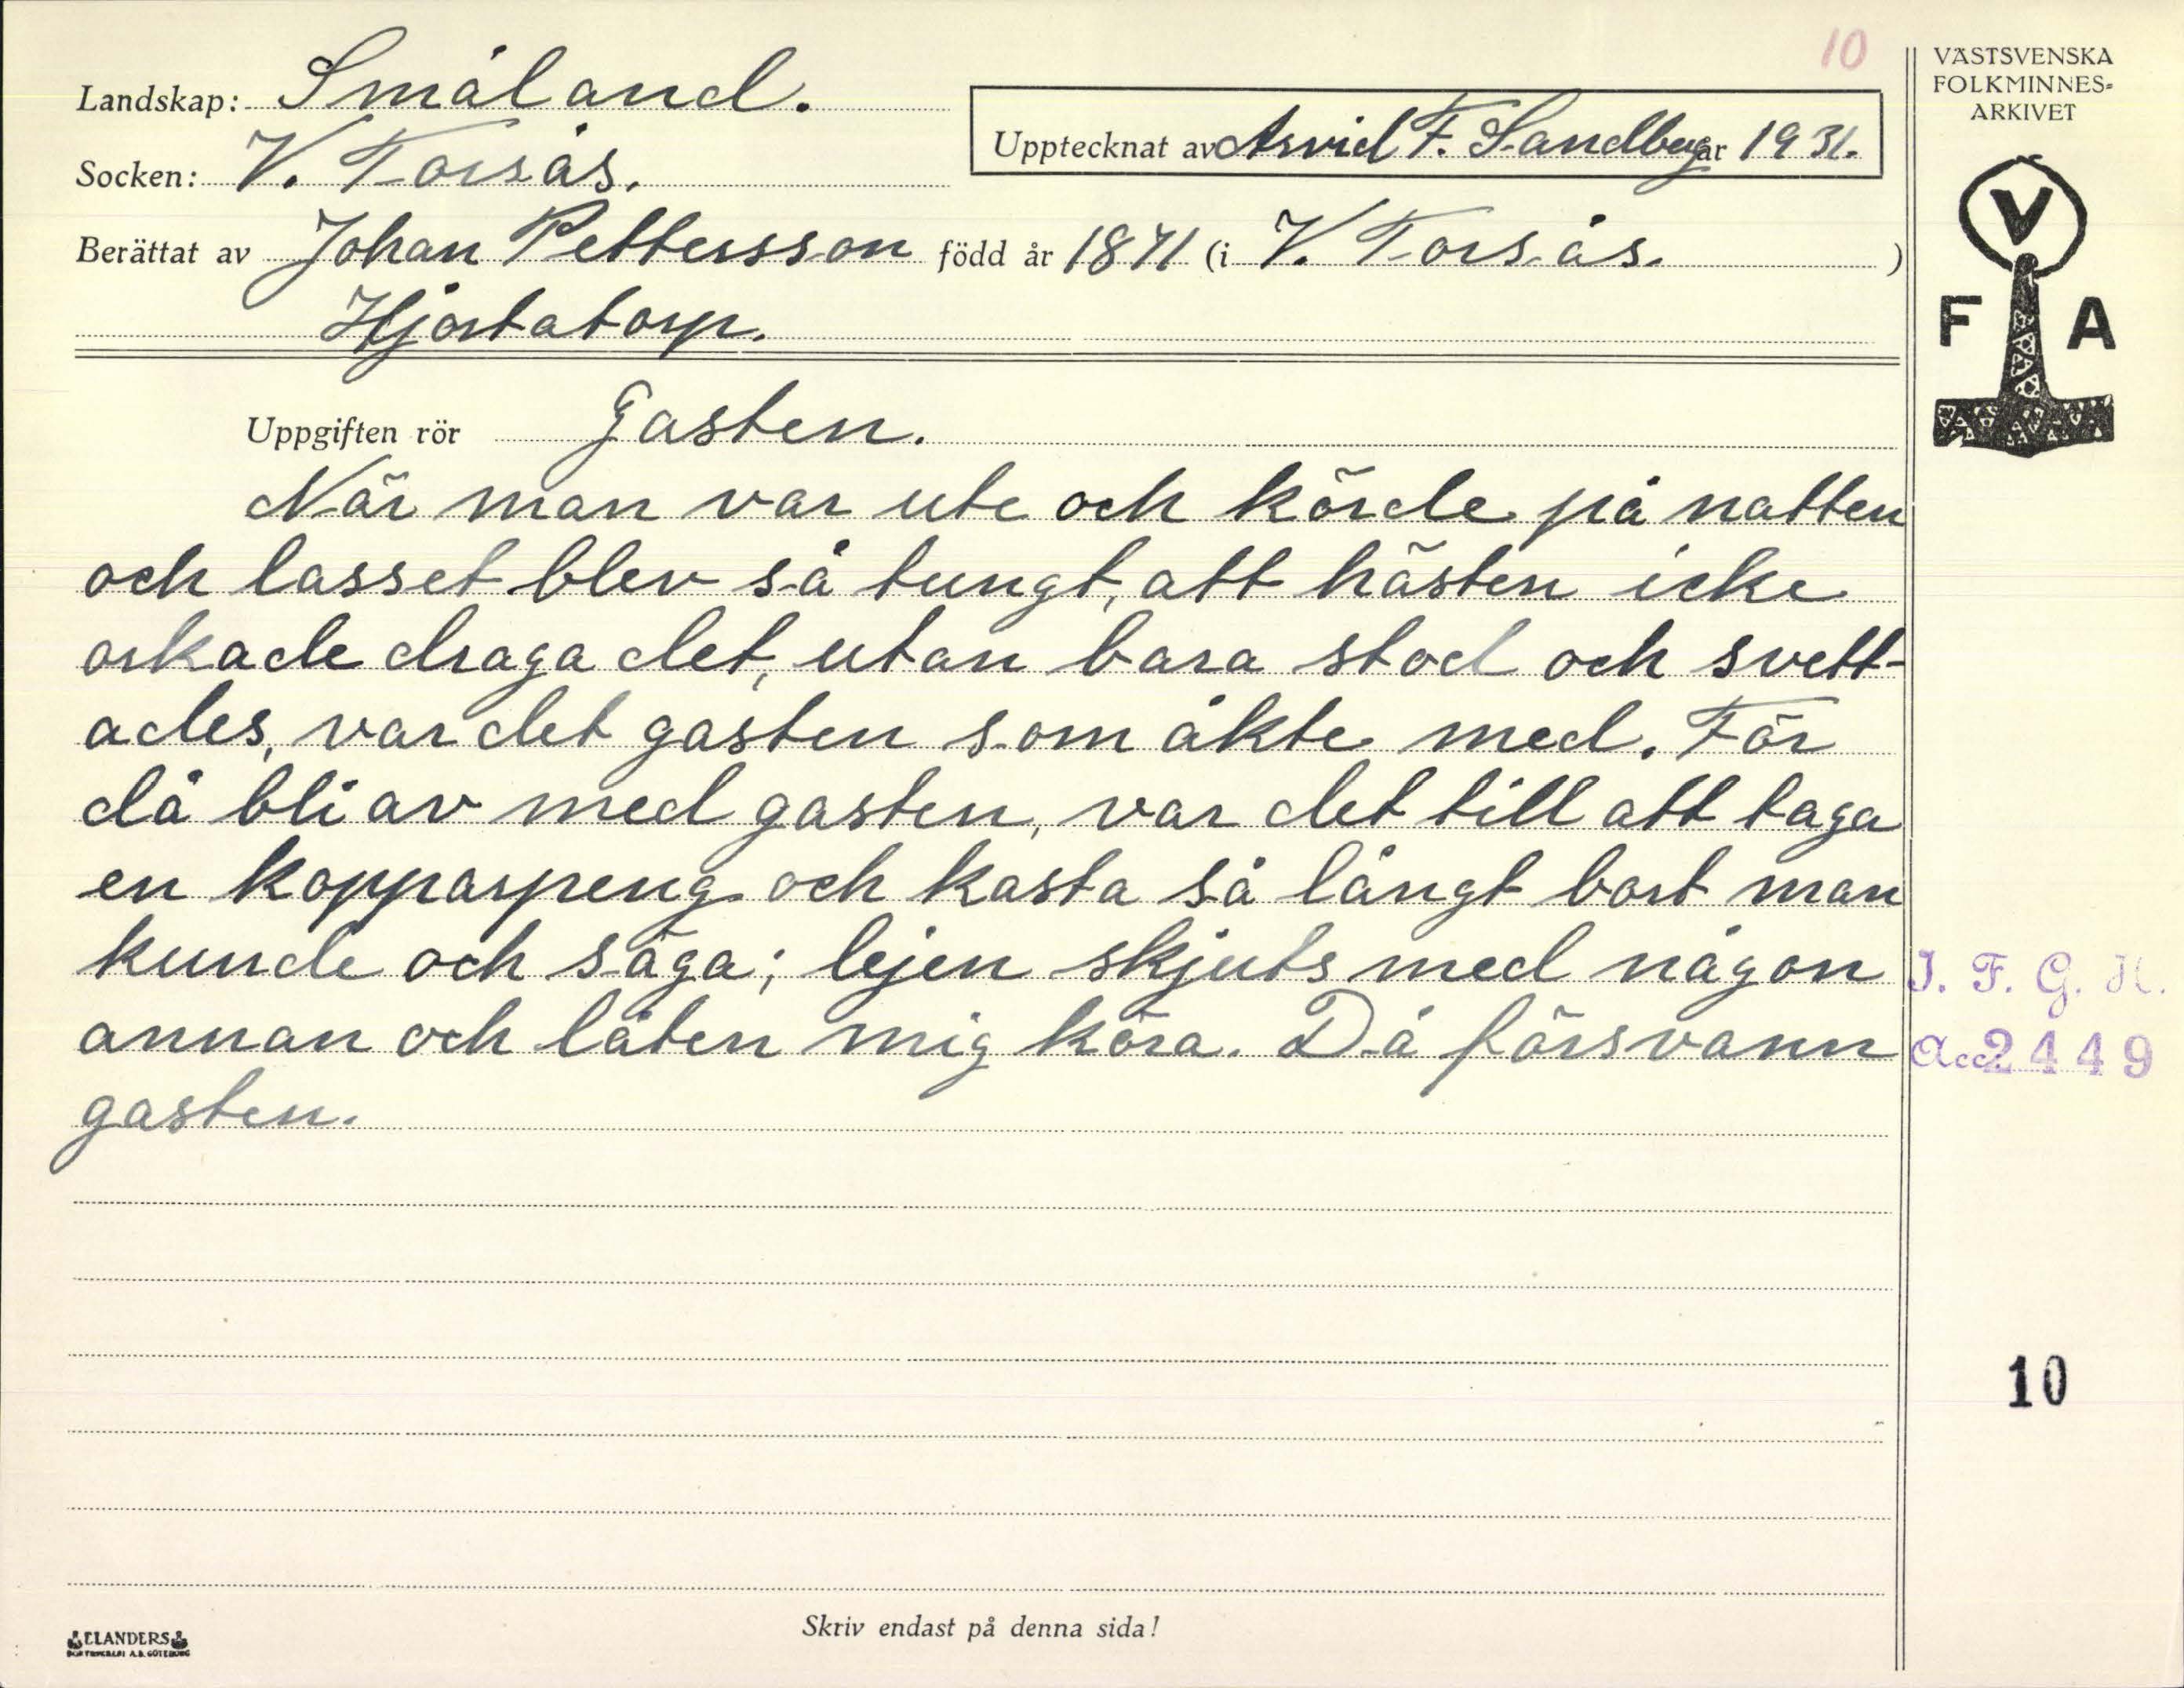 10
Landskap: Småland.
Socken: V. Torsås.
Upptecknat av Arvid F. Sandberg år 1931.
Berättat av Johan Pettersson född år 1871 (i V. Torsås. )
Hjortatorp.
Uppgiften rör Gasten.
När man var ute och körde på natten
och lasset blev så tungt, att hästen icke
orkade draga det, utan bara stod och svett-
ades, var det gasten som åkte med. För
då bli av med gasten, var det till att taga
en kopparpeng och kasta så långt bort man
kunde och säga; lejen skjuts med någon
annan och låten mig köra. Då försvann
gasten.
VÄSTSVENSKA
FOLKMINNES-
ARKIVET
V
F A
I. F. G. H.
Acc. 2449
10
Skriv endast på denna sida!
ELANDERS
BOKTRYCKERI A.B. GÖTEBORG